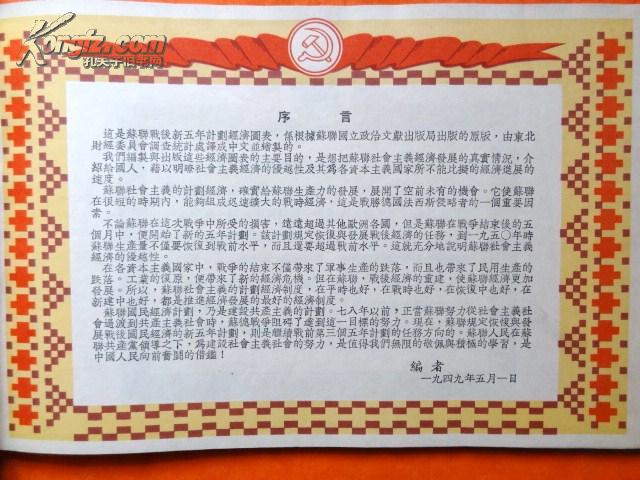 Kongfz.com
孔夫子旧书网
序 言
這是蘇聯戰後新五年計劃經濟圖表，係根據蘇聯國立政治文獻出版局出版的原版，由東北
財經委員會調查統計處譯成中文並繪製的。
我們編製與出版這些經濟圖表的主要目的，是想把蘇聯社會主義經濟發展的真實情況，介
紹給國人，藉以明瞭社會主義經濟的優越性及其為各資本主義國家所不能比擬的經濟進展的
速度。
蘇聯社會主義的計劃經濟，確實給蘇聯生產力的發展，展開了空前未有的機會。它使蘇聯
在很短的時期內，能夠組成迅速擴大的戰時經濟，這是戰勝德國法西斯侵略者的一個重要因
素。
不論蘇聯在這次戰爭中所受的損害，遠遠超過其他歐洲各國，但是蘇聯在戰爭結束後的五
個月中，便開始了新的五年計劃。該計劃規定恢復與發展戰後經濟的任務，到一九五〇年時
蘇聯生產量不僅要恢復到戰前水平，而且還要超過戰前水平。這就充分地說明蘇聯社會主義
經濟的優越性。
在各資本主義國家中，戰爭的結束不僅帶來了軍事生產的跌落，而且也帶來了民用生產的
跌落。工業的復原，便帶來了新的經濟危機。但在蘇聯，戰後經濟的重建，使蘇聯經濟更加
發展。所以，蘇聯社會主義的計劃經濟制度，在平時也好，在戰時也好，在恢復中也好，在
新建中也好，都是推進經濟發展的最好的經濟制度。
蘇聯國民經濟的計劃，乃是建設共產主義的計劃。七八年以前，正當蘇聯努力從社會主義社
會過渡到共產主義社會時，蘇德戰爭阻碍了達到這一目標的努力。現在，蘇聯規定恢復與發
展戰後國民經濟的新五年計劃，則是繼續戰前第三個五年計劃的任務方向的。蘇聯人民在蘇
聯共產黨領導之下，為建設社會主義社會的努力，是值得我們無限的敬佩與積極的學習，是
中國人民向前奮鬪的借鑑！
編 者
一九四九年五月一日